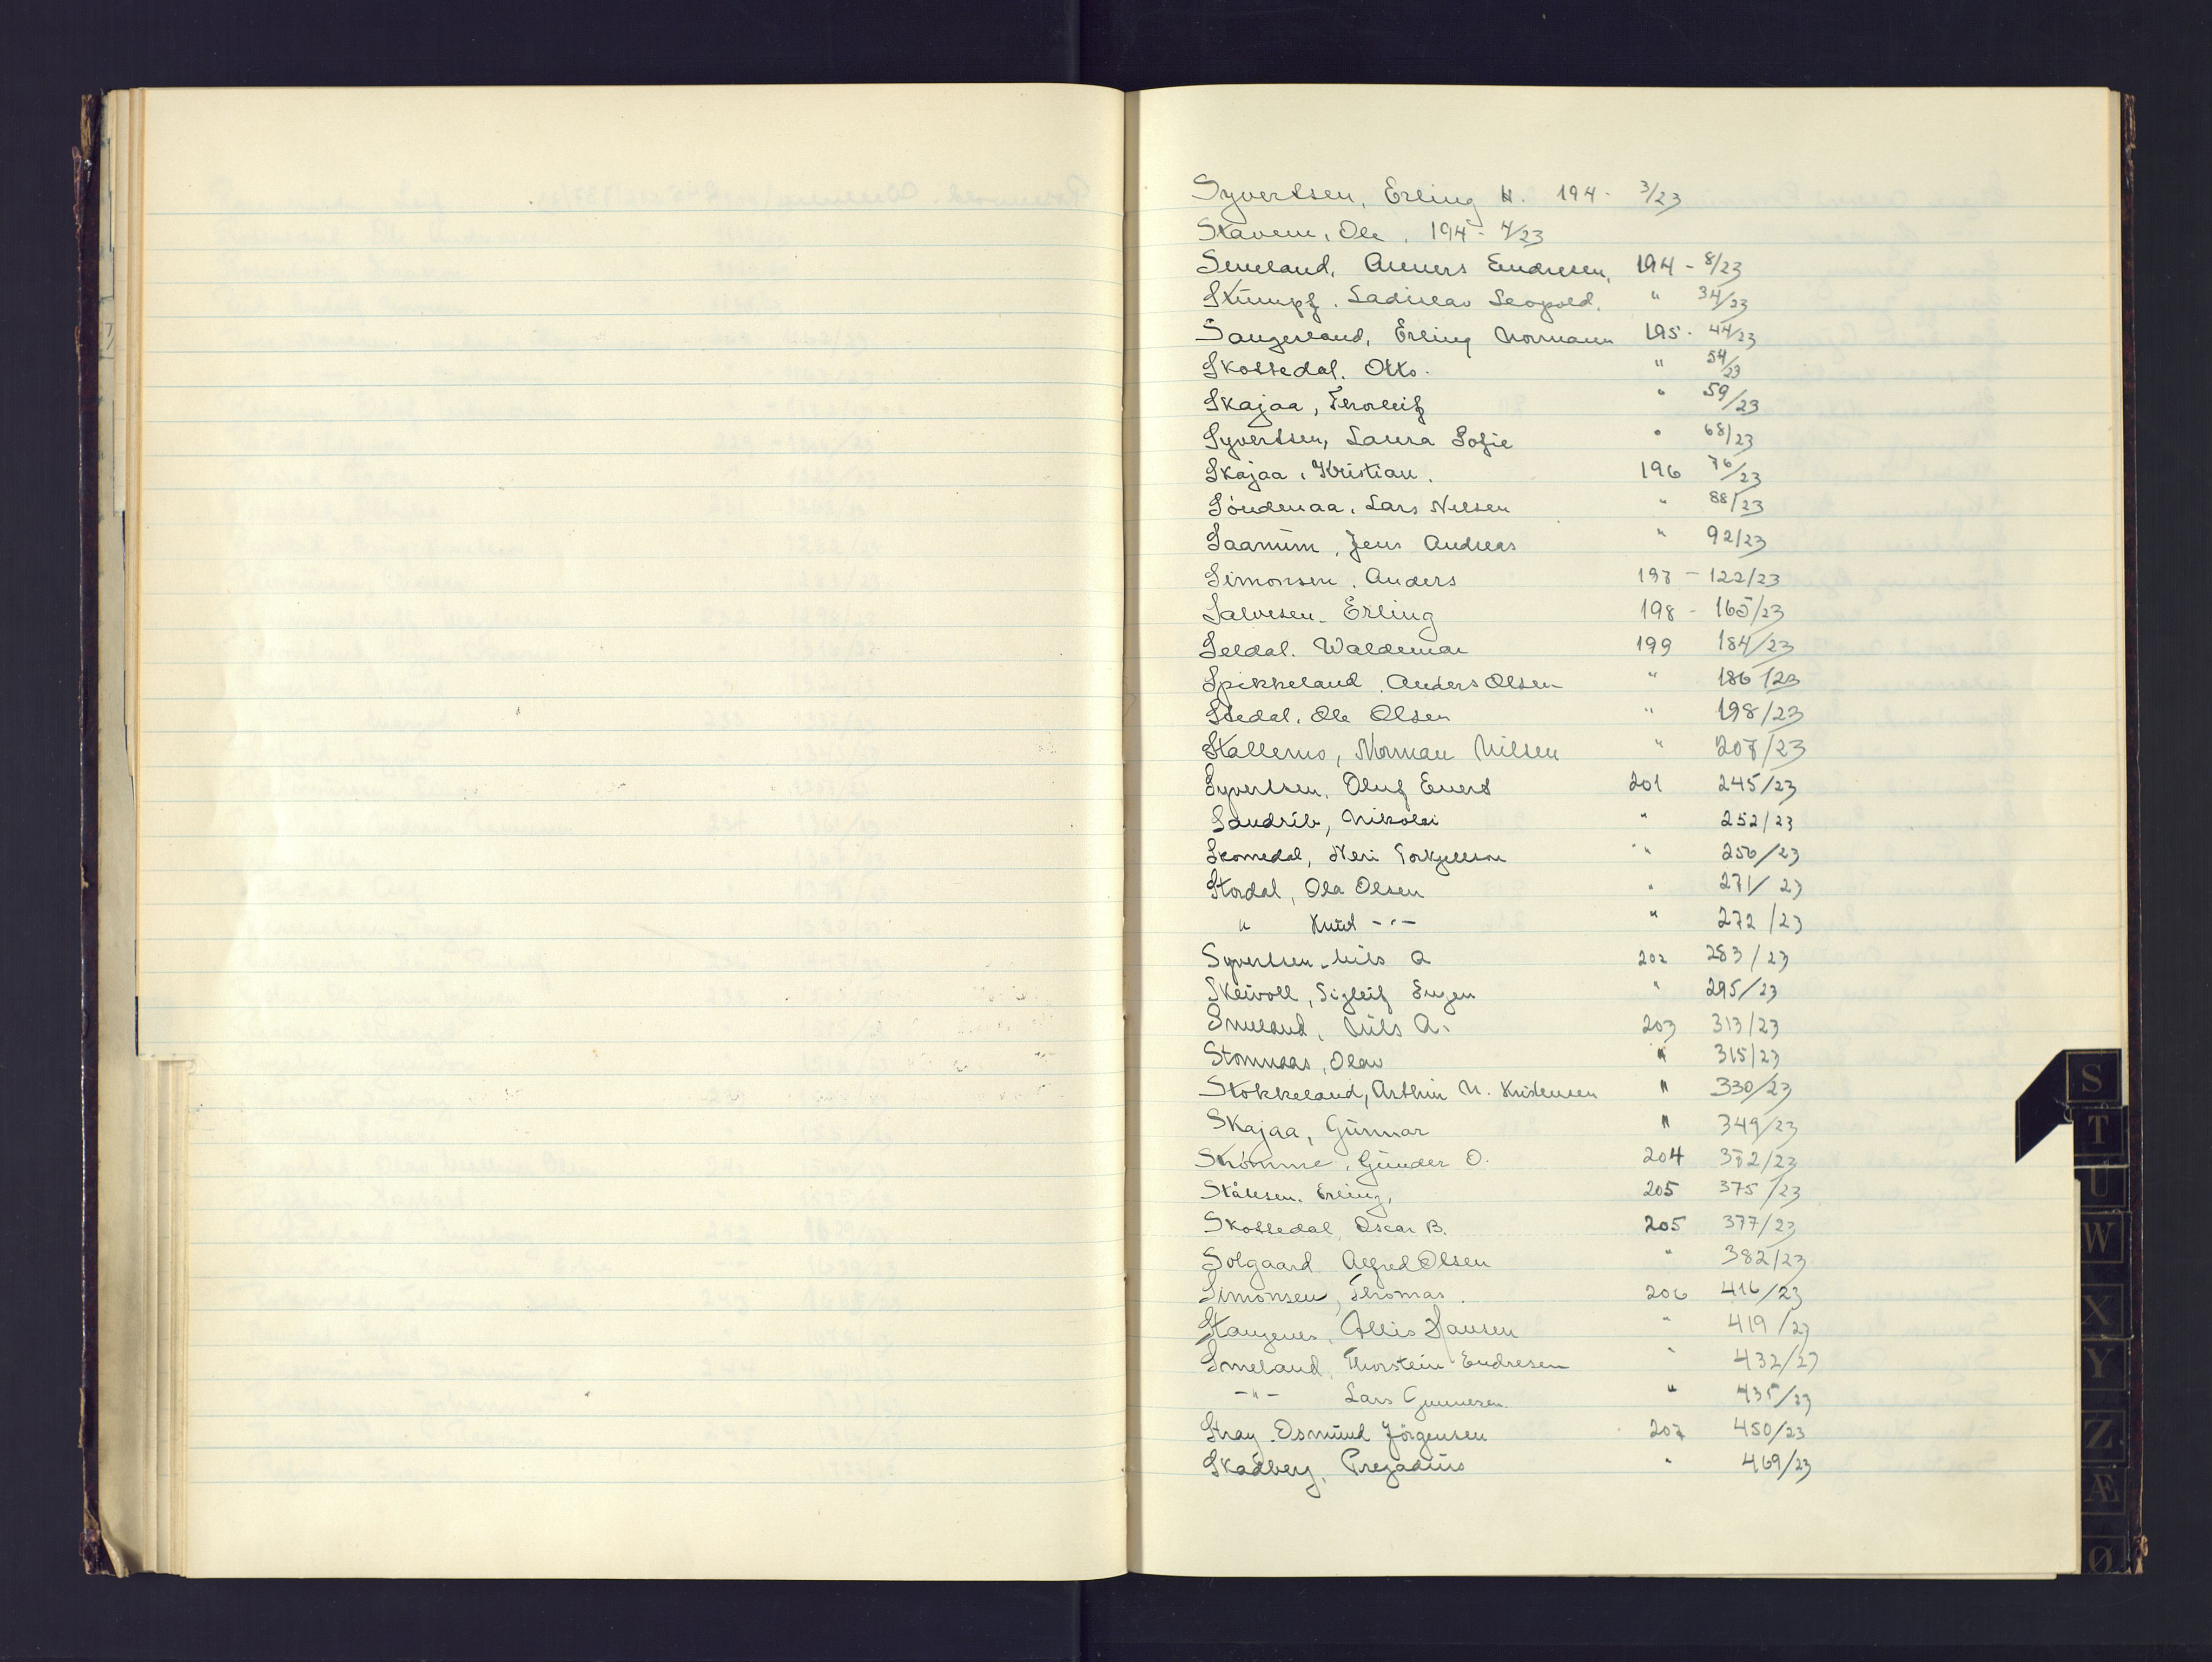 Syvertsen, Erling H. 194 - 3/23
Stavem, Ole. 194 - 4/23
Smeland, Anners Endresen, 194 - 8/23
Stümpf. Ladislav Leopold. " 34/23
Sangesland, Erling Normann 195 - 44/23
Skossedal. Otto. " 54/23
Skajaa, Thorleif " 59/23
Syvertsen, Laura Sofie " 68/23
Skajaa, Kristian. 196 76/23
Söndenaa, Lars Nilsen " 88/23
Saanum, Jens Andreas " 92/23
Simonsen, Anders 197 - 122/23
Salvesen - Erling 198 - 165/23
Seldal. Waldemar 199 184/23
Spikkeland. Anders Olsen " 186/23
Stedal, Ole Olsen " 198/23
Stallemo, Norman Nilsen " 207/23
Syvertsen, Oluf Evert 201 245/23
Sandrib, Nikolai " 252/23
Skomedal, Neri Torkjellsen " 256/23
Stordal, Ola Olsen " 271/23
" Knud -"- " 272/23
Syvertsen, Nils A 202 283/23
Skeivoll, Sigleif Eugen " 295/23
Smeland, Nils A. 203 313/23
Stomnaas, Olav " 315/23
Stokkeland, Arthur N. Kristensen " 330/23
Skajaa, Gunnar " 349/23
Strömme, Gunder O. 204 372/23
Stålesen. Erling, 205 375/23
Skossedal, Oscar B. 205 377/23
Solgaard Alfred Olsen " 382/23
Simonsen, Thomas. 206 416/23
Stangenes, Allis Hansen " 419/23
Smeland, Thorstein Endresen " 432/23
-"- Lars Gunnersen. " 435/23
Stray. Osmund Jörgensen 207 450/23
Skadberg, Pregadius " 469/23
S
T
U
W
X
Y
Z
Æ
Ø